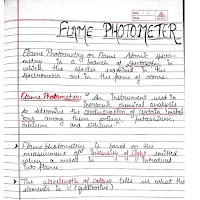 FLAME PHOTOMETER
Flame Photometry or Flame Atomic
metry is a branch of spectroscopy in
which the species examined in the
spectrometer are in the form of atoms
Flame Photometer: An instrument used in
inorganic chemical analysis
to determine the concentration of certain metal
ions among them sodium, potassium,
calcium and lithium.
Flame Photometry is based on the
measurement of intensity of light emitted
when a metal is introduced
into flame.
The wavelength of colour tells us what the
element is (qualitative)